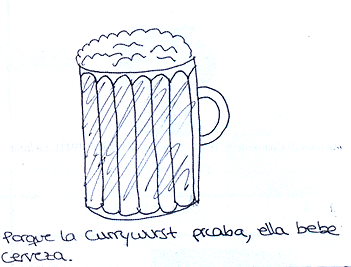 Porque la Currywurst picaba, ella bebe
cerveza.